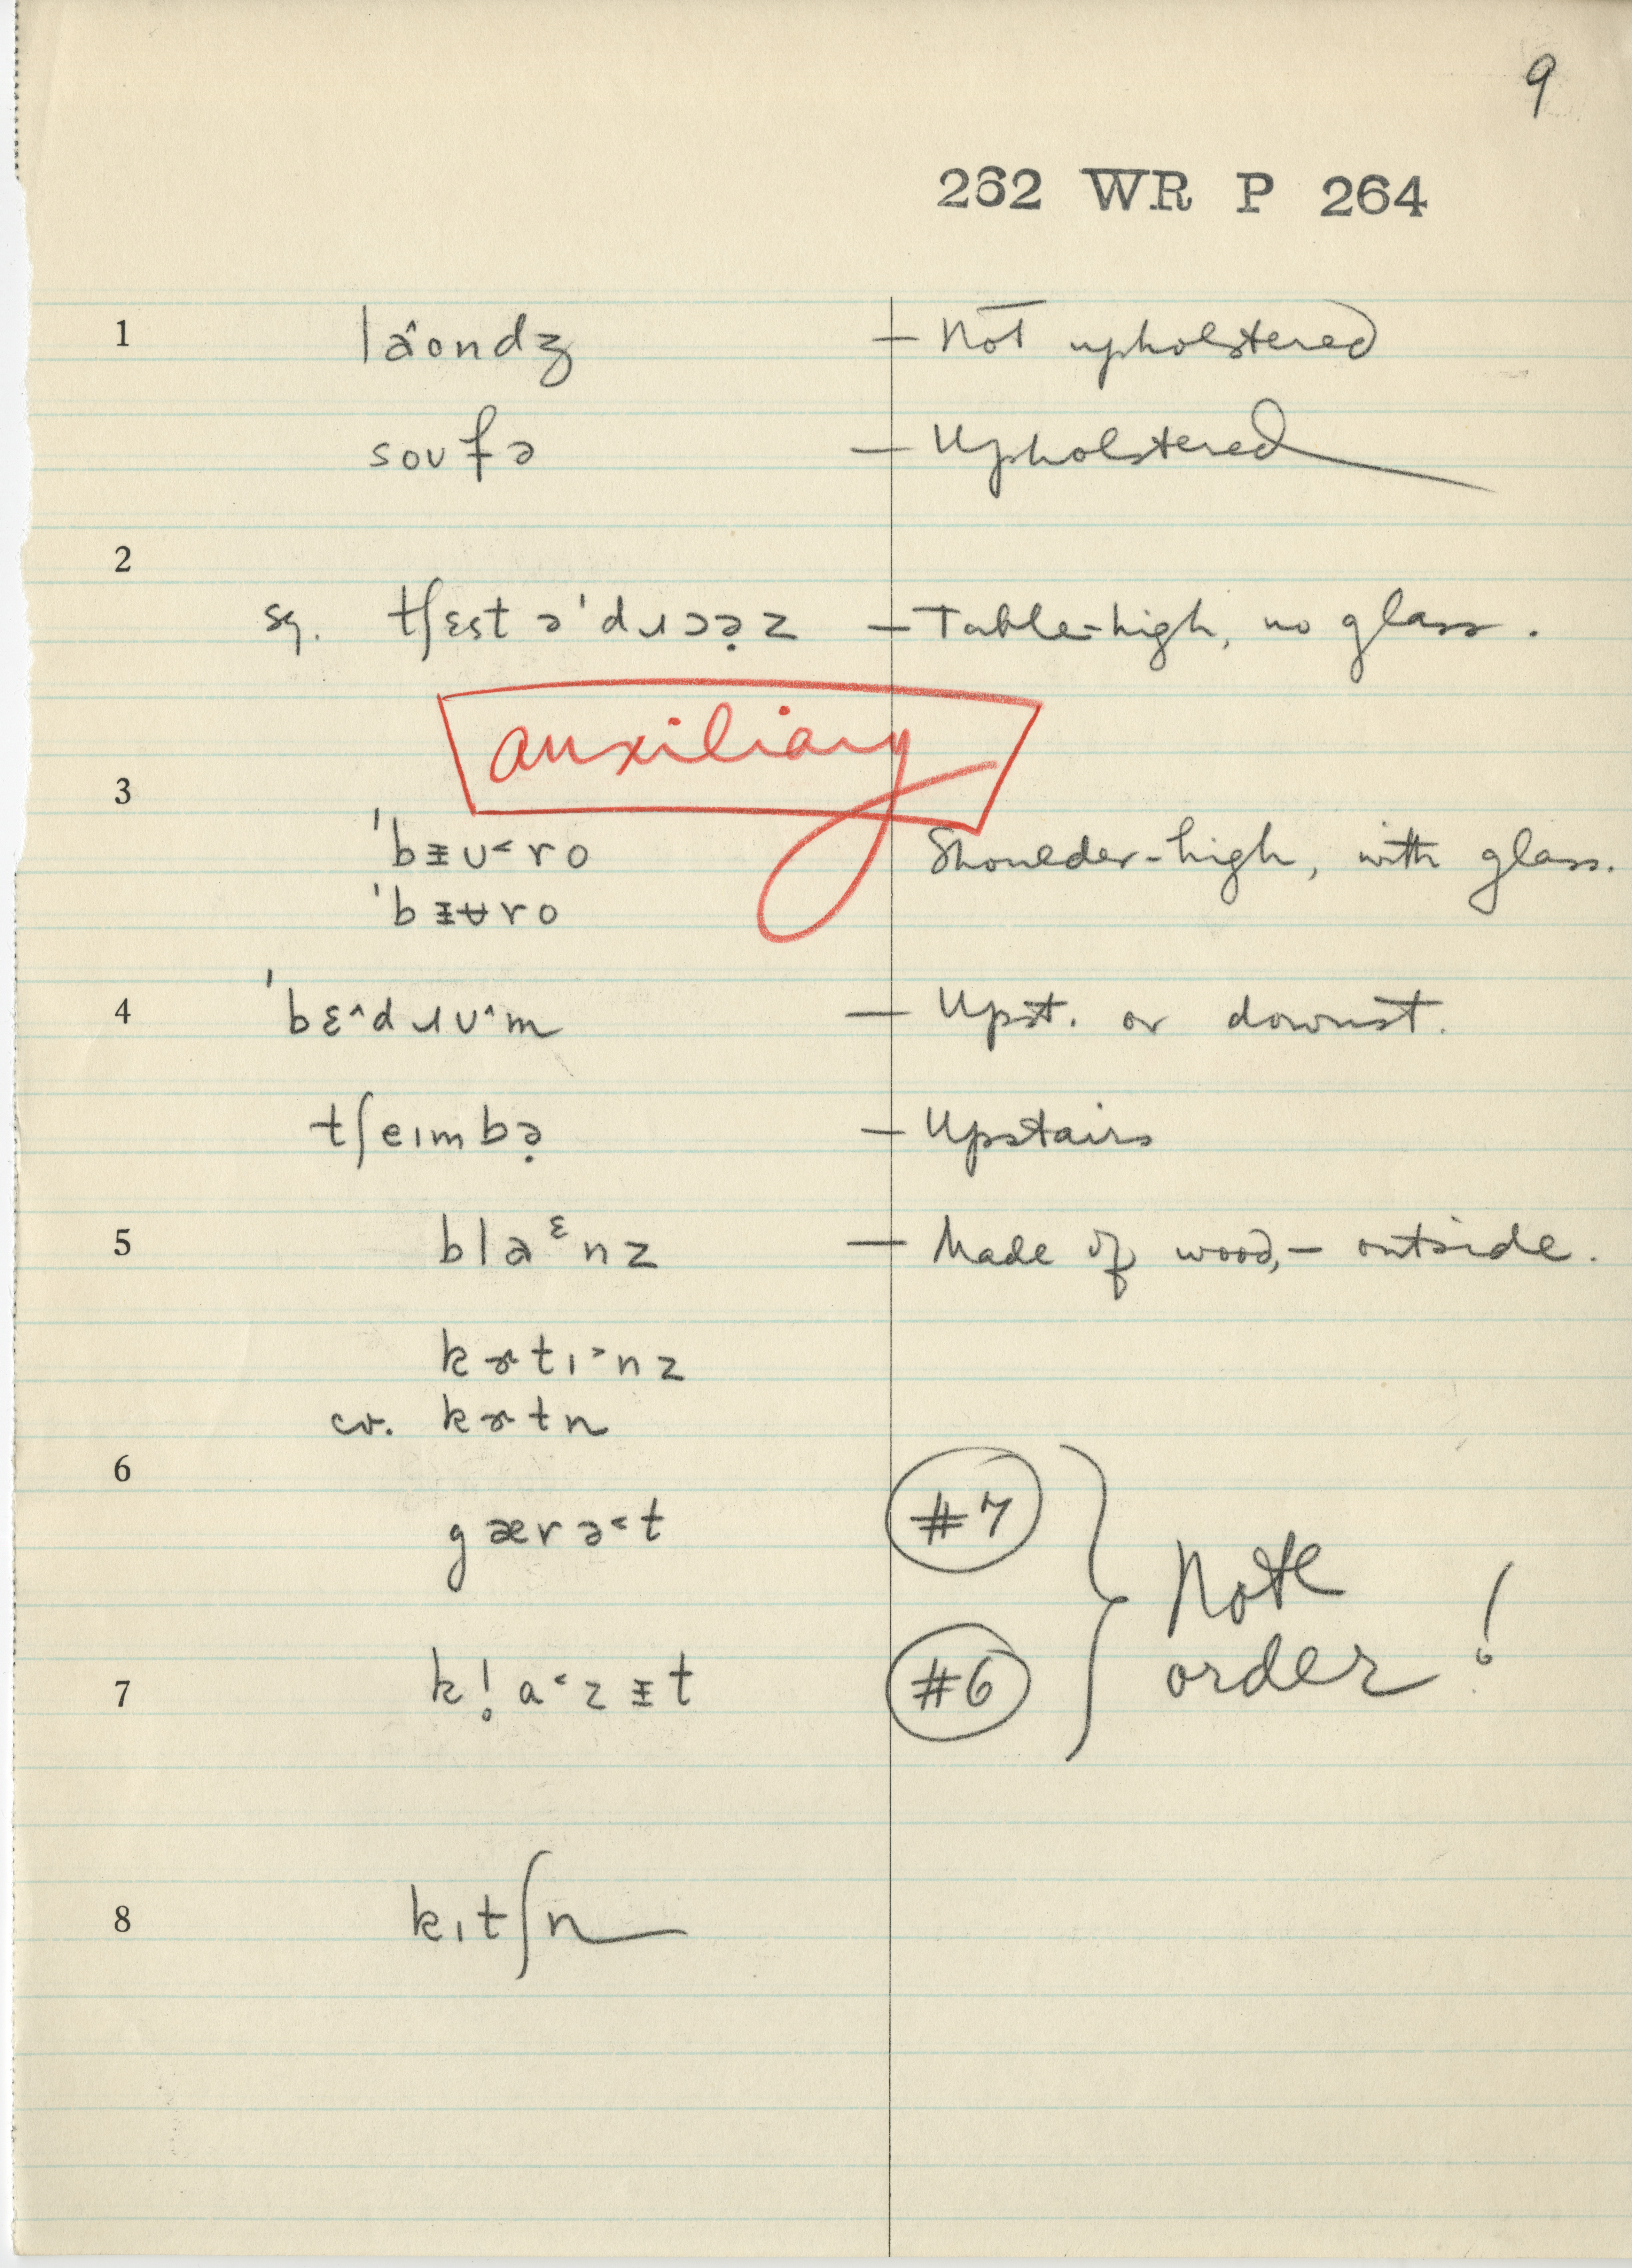 9
262 WR P 264
1 laˆondʒ — Not upholstered
soufə — Upholstered
2
sg. tʃɛst ə'dɹɔə̣z — Table-high, no glass.
auxiliary
3
'bᵻu˂ro Shoulder-high, with glass.
'bᵻʉro
4 'bɛ^dɹu^m — Upst. or downst.
tʃeɪmbə̣ — Upstairs
5 blaᵋnz — Made of wood,— outside.
kɚtɪ˃nz
cr. kɚtn
6
gærə˂t #7
Note
7 k!̥a˂zᵻt #6 order!
8 kɪtʃn